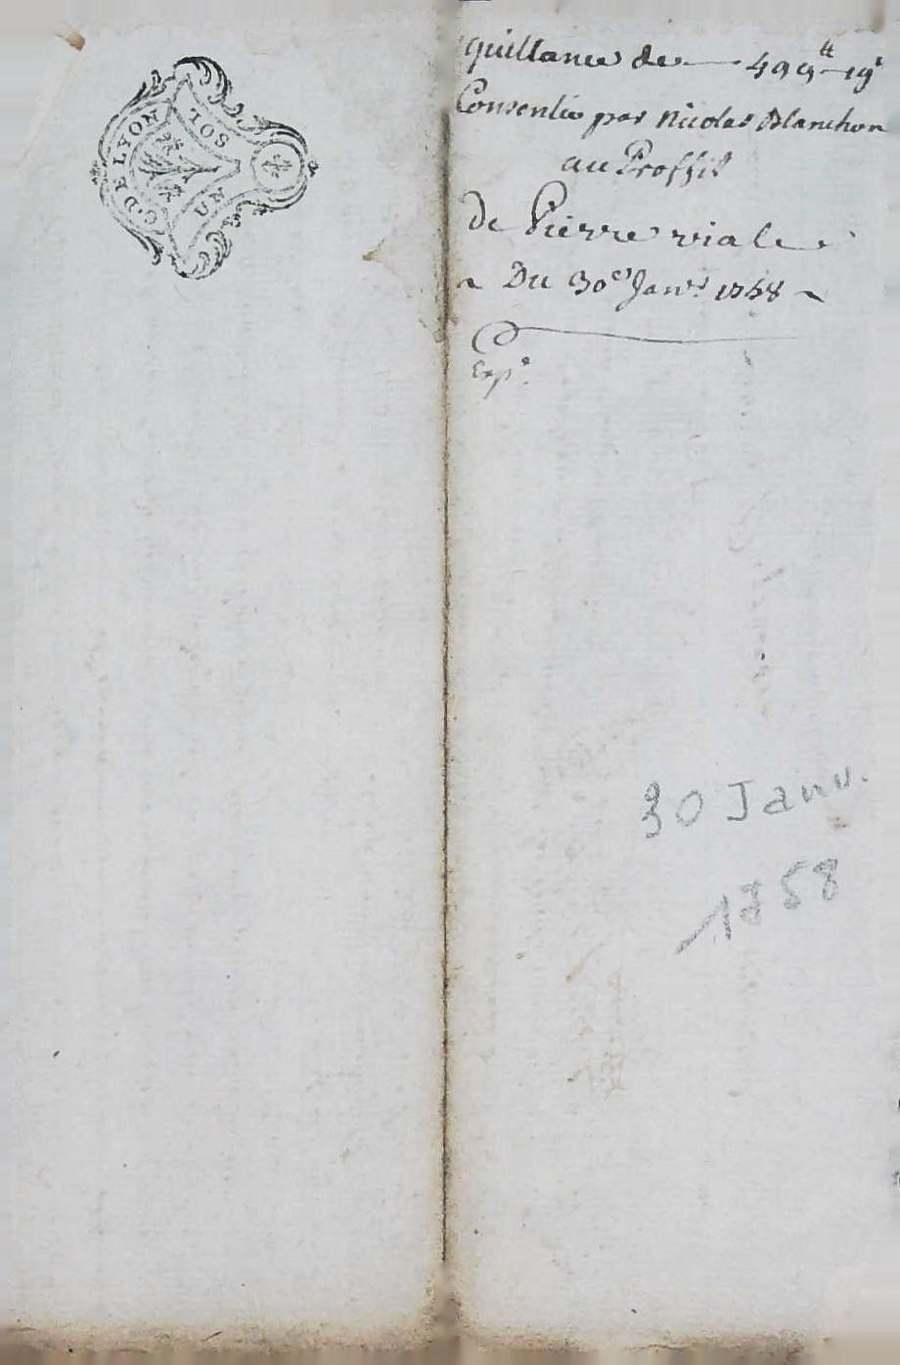 G. DE LYON
UN SOL
quittance de — 499ᵗᵗ 19ˢ
Consentie par Nicolas Blanchon
au Proffit
de Pierre viale
Du 30ᵉ Janvʳ 1758
Expᵉ
30 Janv.
1758